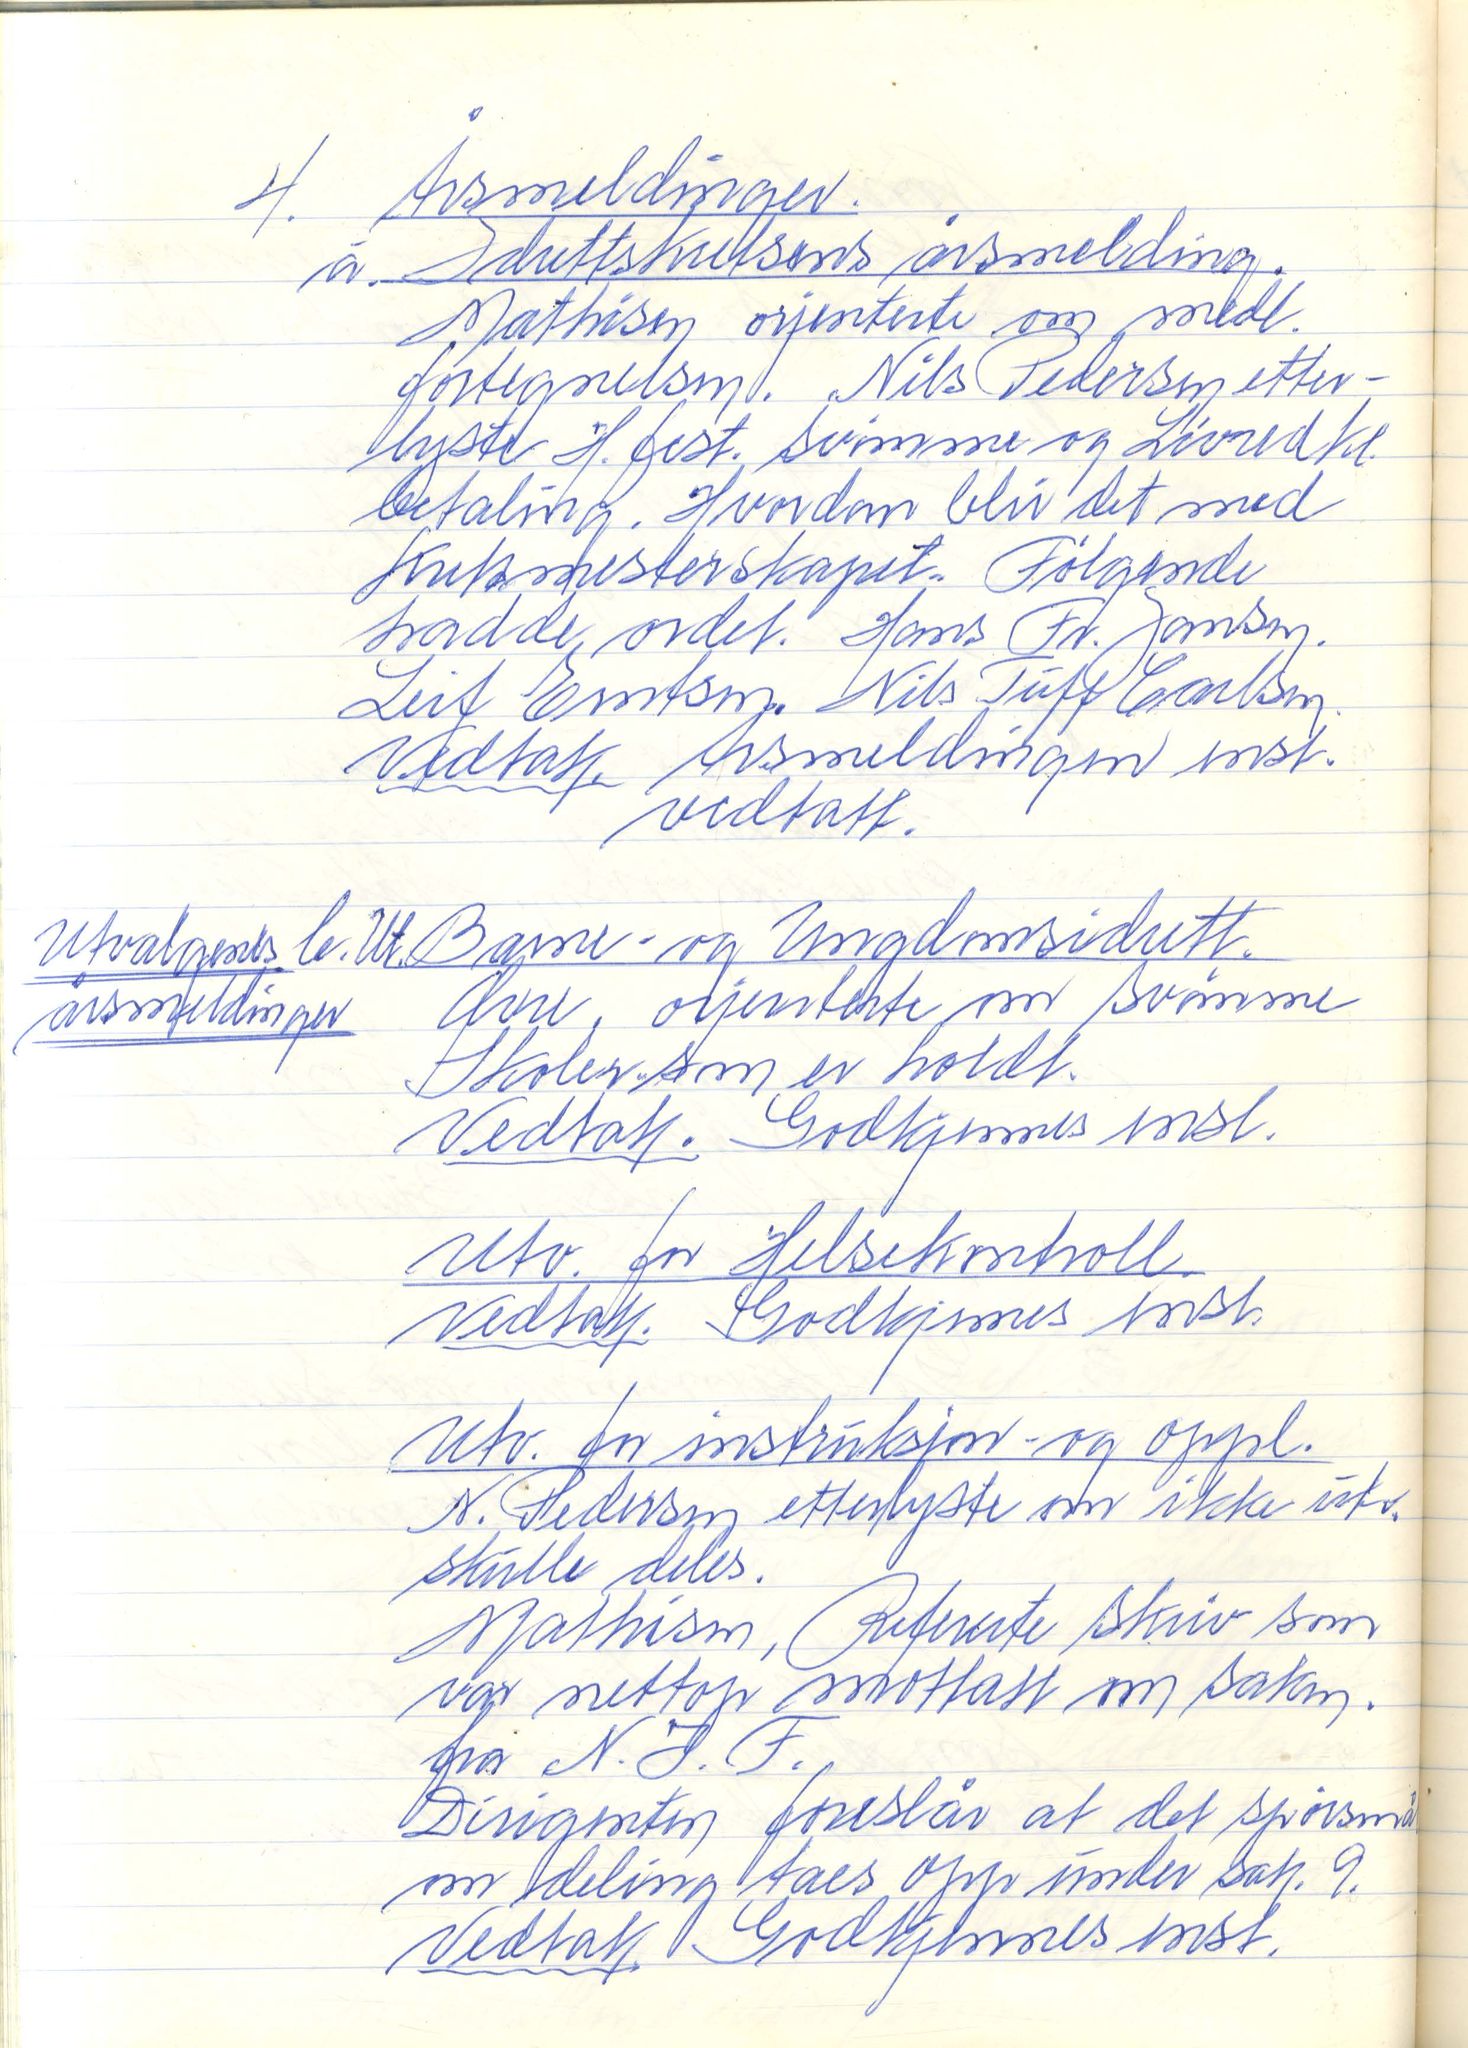 4. Årsmeldinger.
a. Idrettskretsens årsmelding.
Mathisen orjenterte om medl.
fortegnelsen. Nils Pedersen etter-
lyste H.fest. Svømme og Livredkl.
betaling. Hvordan blir det med
Kretsmesterskapet. Følgende
hadde ordet. Hans Fr. Jansen.
Leif Erntsen. Nils Tuff Carlsen.
Vedtak. Årsmeldingen enst.
vedtatt.
Utvalgenes b. Ut. Barne- og Ungdomsidrett.
årsmeldinger
orjenterte om svømme
Skoler som er holdt.
Vedtak. Godkjennes enst.
Utv. for Helsekontroll.
Vedtak. Godkjennes enst.
Utv. for instruksjon- og oppl.
N. Pedersen etterlyste om ikke utv.
skulle deles.
Mathisen, Refererte skriv som
var nettop mottatt om saken.
fra N.I.F.
Dirigenten foreslår at det spørsmål
om deling taes opp under sak. 9.
Vedtak. Godkjennes enst.